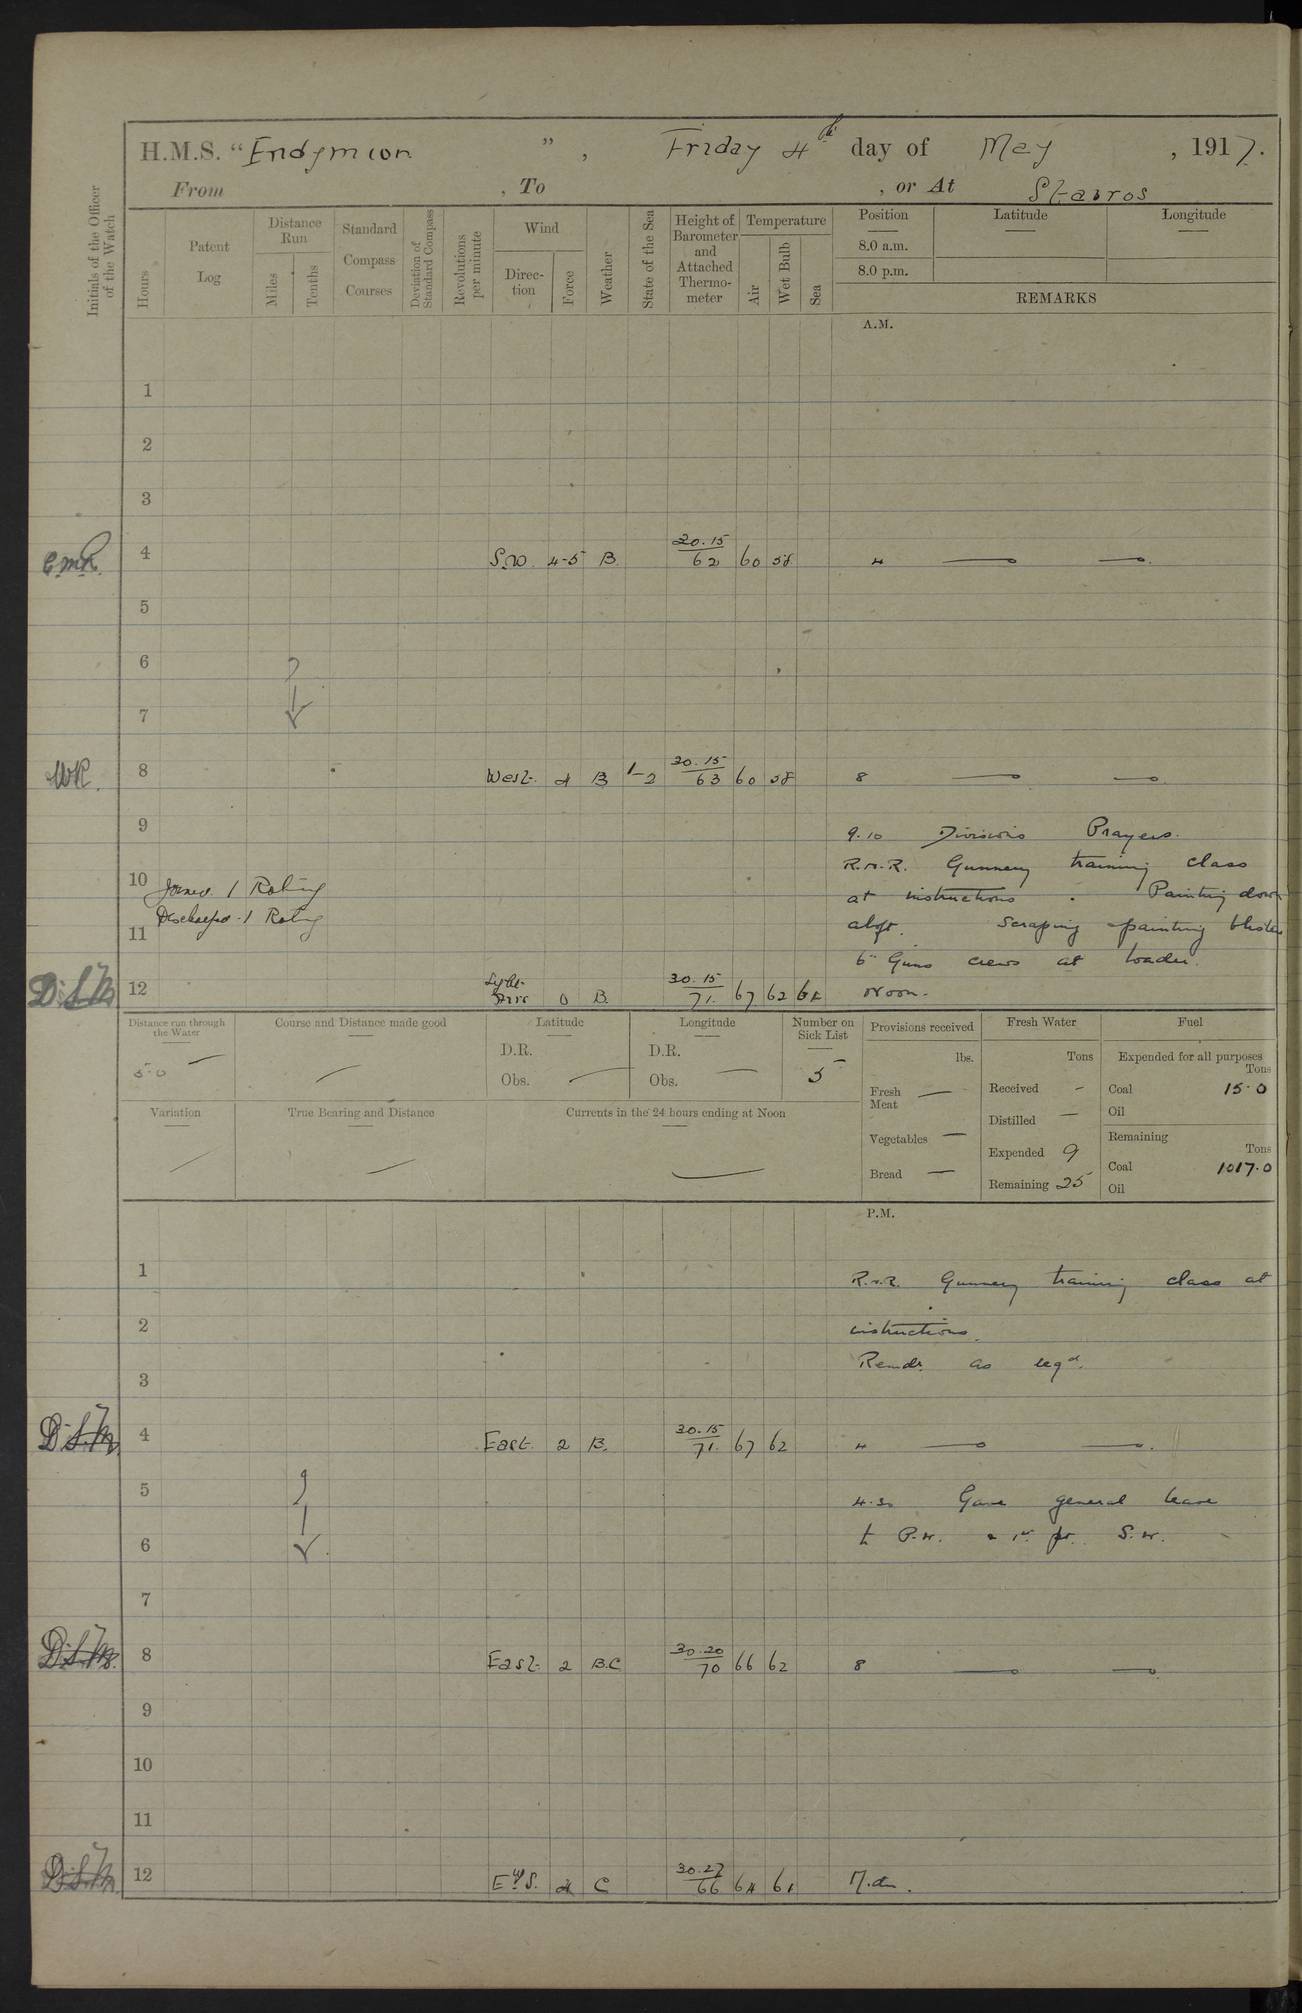 H.M.S. “Endymion”, Friday 4th day of May, 1917.
From , To , or At Stavros
Initials of the Officer of the Watch
Hours
Patent Log
Distance Run
Miles
Tenths
Standard Compass Courses
Deviation of Standard Compass
Revolutions per minute
Wind
Direction
Force
Weather
State of the Sea
Height of Barometer and Attached Thermometer
Temperature
Air
Wet Bulb
Sea
Position
Latitude
Longitude
8.0 a.m.
8.0 p.m.
REMARKS
A.M.
1
2
3
4 S.W. 4-5 B. 30.15 62 60 58 4
5
6
7
WR. 8 West. 4 B 1-2 30.15 63 60 58 8
9 9.10 Divisions Prayers.
R.N.R. Gunnery training class
10 Joined. 1 Rating at instructions. Painting down
Discharged. 1 Rating aloft. Scraping & painting blister
11 6" Guns crews at loader.
D.S.M. 12 Light Airs 0 B. 30.15 71. 67 62 64 Noon.
Distance run through the Water
5.0
Course and Distance made good
Latitude
D.R.
Obs.
Longitude
D.R.
Obs.
Number on Sick List
5
Provisions received
lbs.
Fresh Meat —
Vegetables —
Bread —
Fresh Water
Tons
Received -
Distilled —
Expended 9
Remaining 25
Fuel
Expended for all purposes
Tons
Coal 15.0
Oil
Remaining
Tons
Coal 1017.0
Oil
Variation
True Bearing and Distance
Currents in the 24 hours ending at Noon
P.M.
1 R.N.R. Gunnery training class at
2 instructions.
Remdr. as reqd.
3
D.S.M. 4 East. 2 B. 30.15 71. 67 62 4
5 4.30 Gave general leave
6 to P.W. & 1st pt. S.W.
7
D.S.M. 8 East 2 B.C 30.20 70 66 62 8
9
10
11
D.S.M. 12 E by S. 4 C 30.27 66 64 61 M.dn.